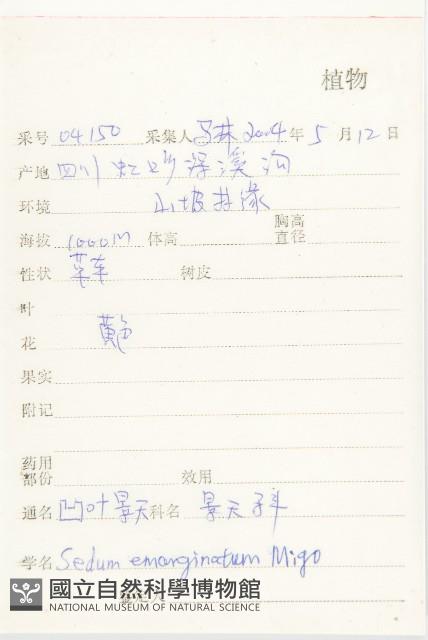 植物
采号 04150 采集人 马林 2004 年 5 月 12 日
产地 四川 虹口 深溪沟
环境 山坡林缘
海拔 1000m 体高 胸高直径
性状 草本 树皮
叶
花 黄色
果实
附记
药用部份 效用
通名 凹叶景天 科名 景天科
学名 Sedum emarginatum Migo
國立自然科學博物館
NATIONAL MUSEUM OF NATURAL SCIENCE